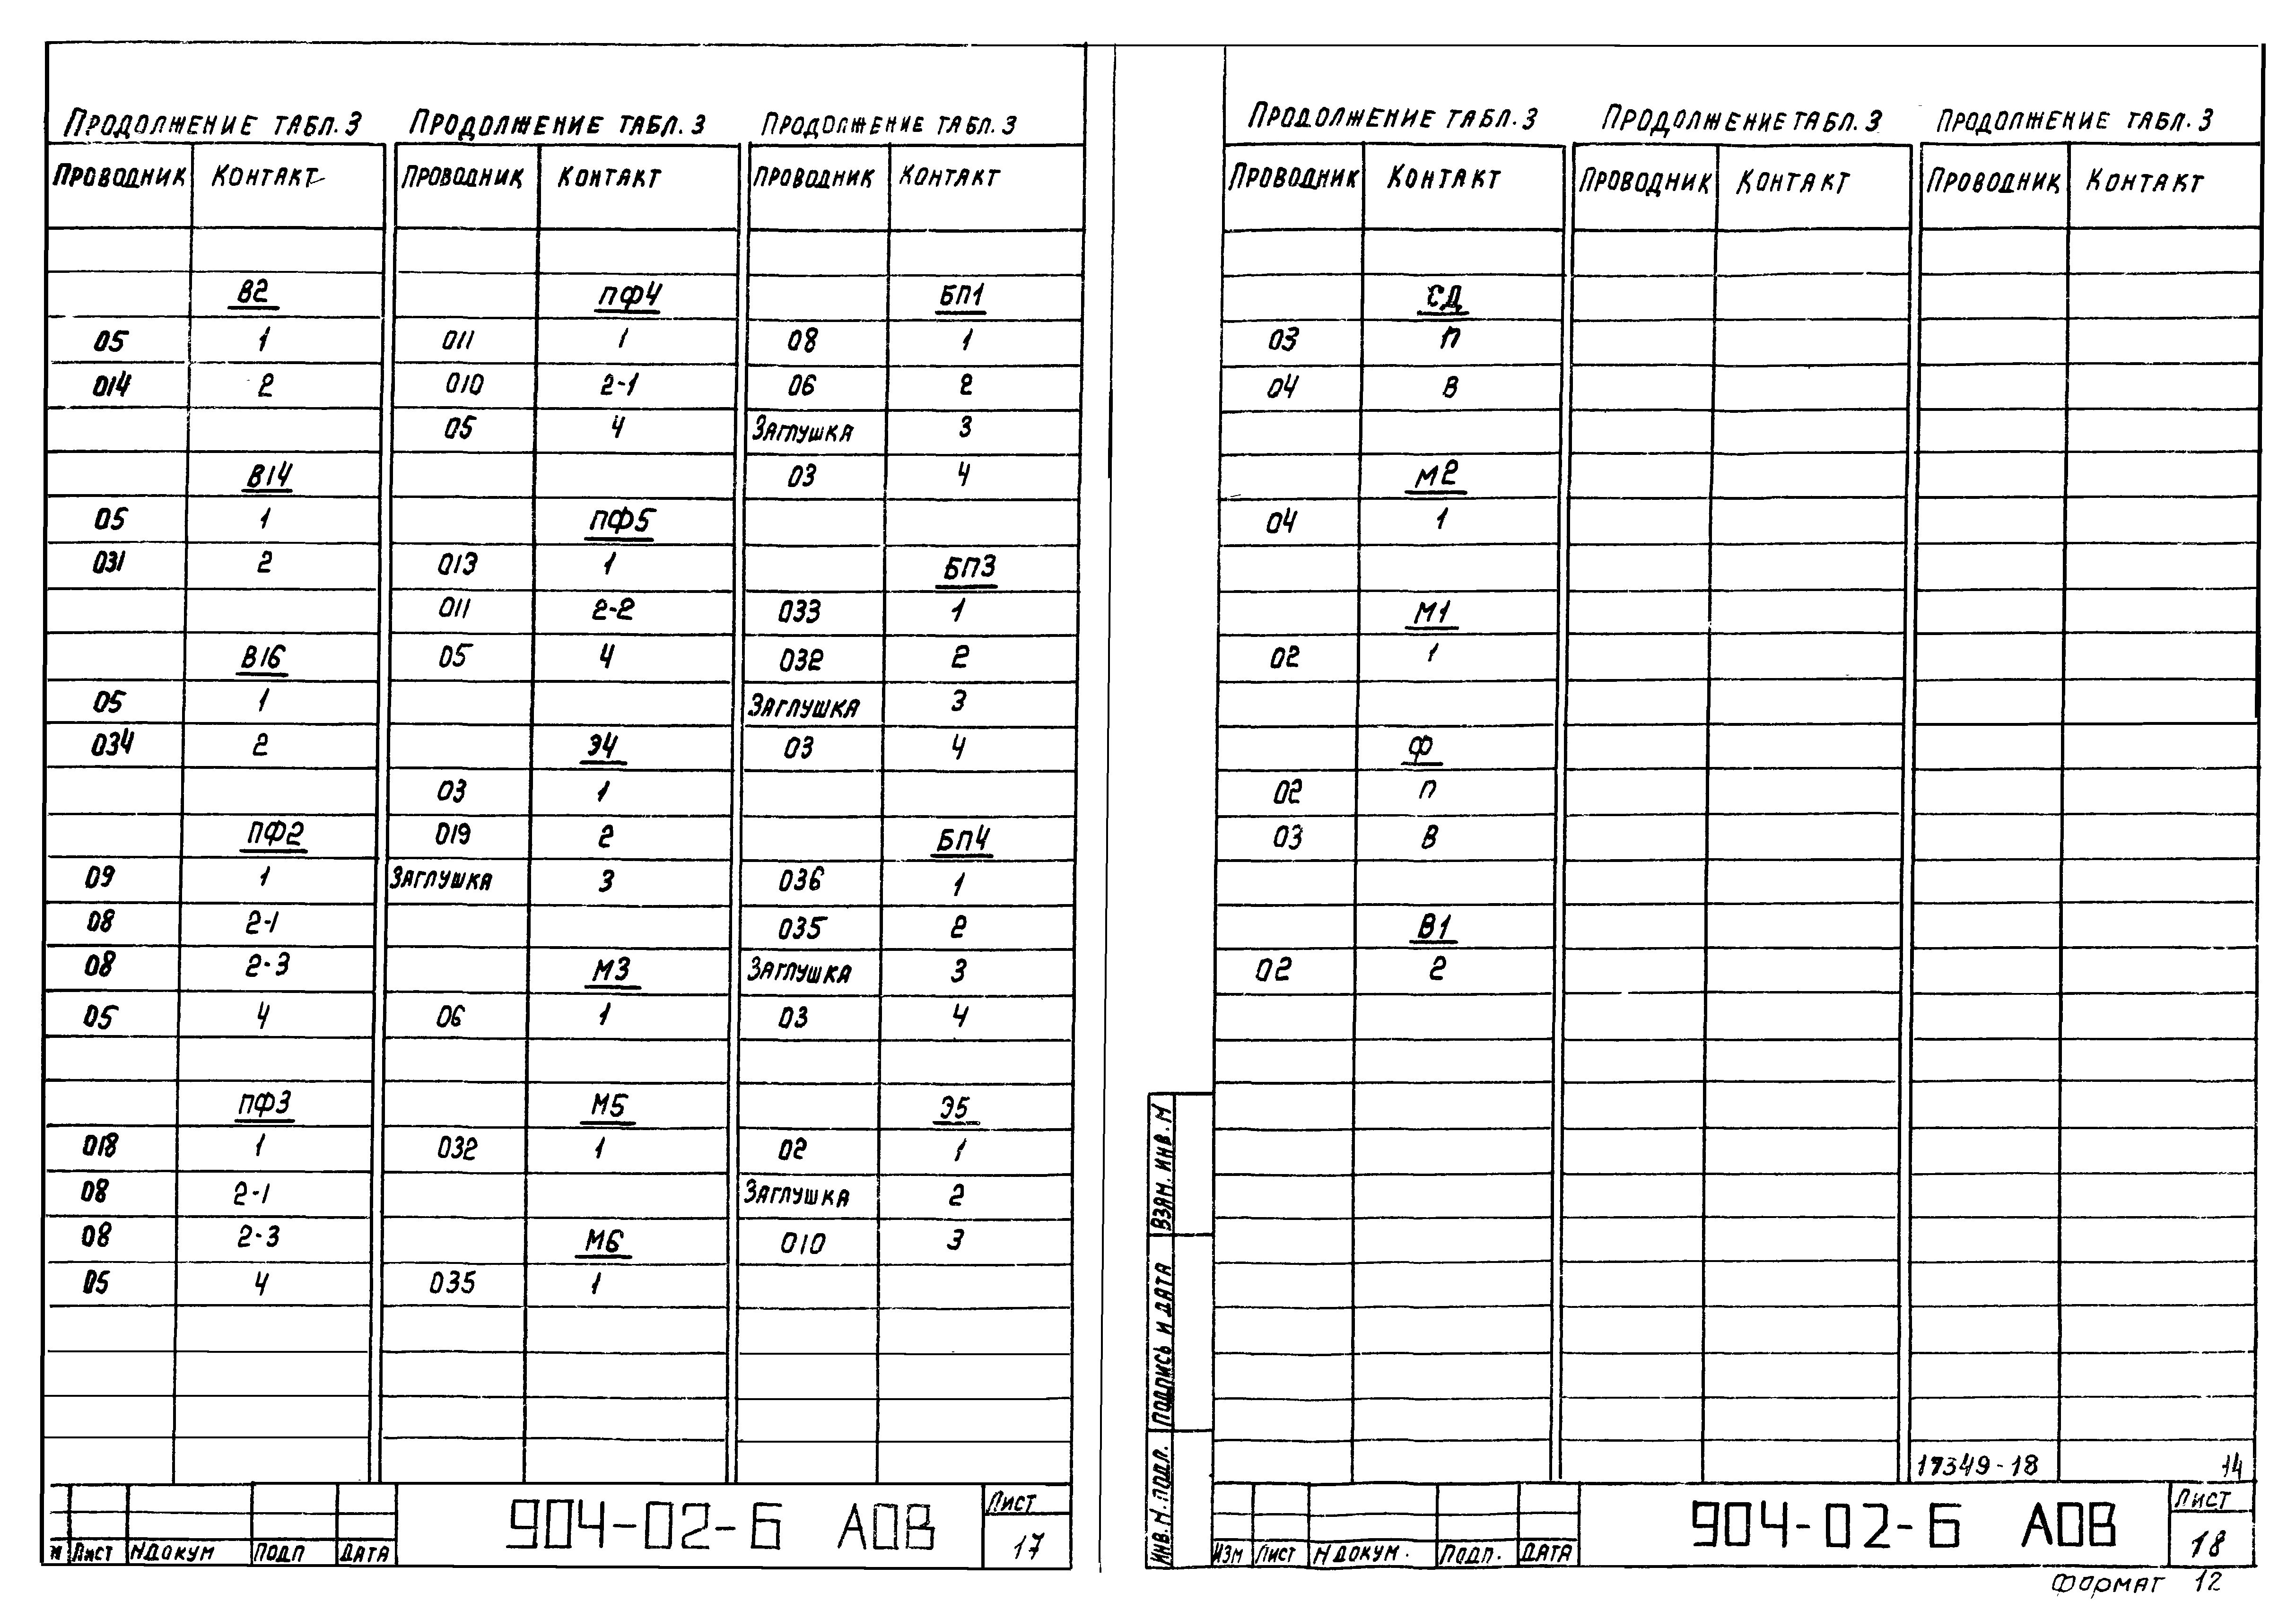 Продолжение табл. 3
Проводник Контакт
В2
05 1
014 2
В14
05 1
031 2
В16
05 1
034 2
ПФ2
09 1
08 2-1
08 2-3
05 4
ПФ3
018 1
08 2-1
08 2-3
05 4
Продолжение табл. 3
Проводник Контакт
ПФ4
011 1
010 2-1
05 4
ПФ5
013 1
011 2-2
05 4
Э4
03 1
019 2
Заглушка 3
М3
06 1
М5
032 1
М6
035 1
Продолжение табл. 3
Проводник Контакт
БП1
08 1
06 2
Заглушка 3
03 4
БП3
033 1
032 2
Заглушка 3
03 4
БП4
036 1
035 2
Заглушка 3
03 4
Э5
02 1
Заглушка 2
010 3
И Лист Nдокум Подп Дата
904-02-6 АОВ
Лист
17
Продолжение табл. 3
Проводник Контакт
СД
03 П
04 В
М2
04 1
М1
02 1
Ф
02 П
03 В
В1
02 2
Продолжение табл. 3
Проводник Контакт
Продолжение табл. 3
Проводник Контакт
Взам. инв. N
Подпись и дата
Инв. N. подл.
17349-18 14
Изм Лист Nдокум. Подп. Дата
904-02-6 АОВ
Лист
18
Формат 12